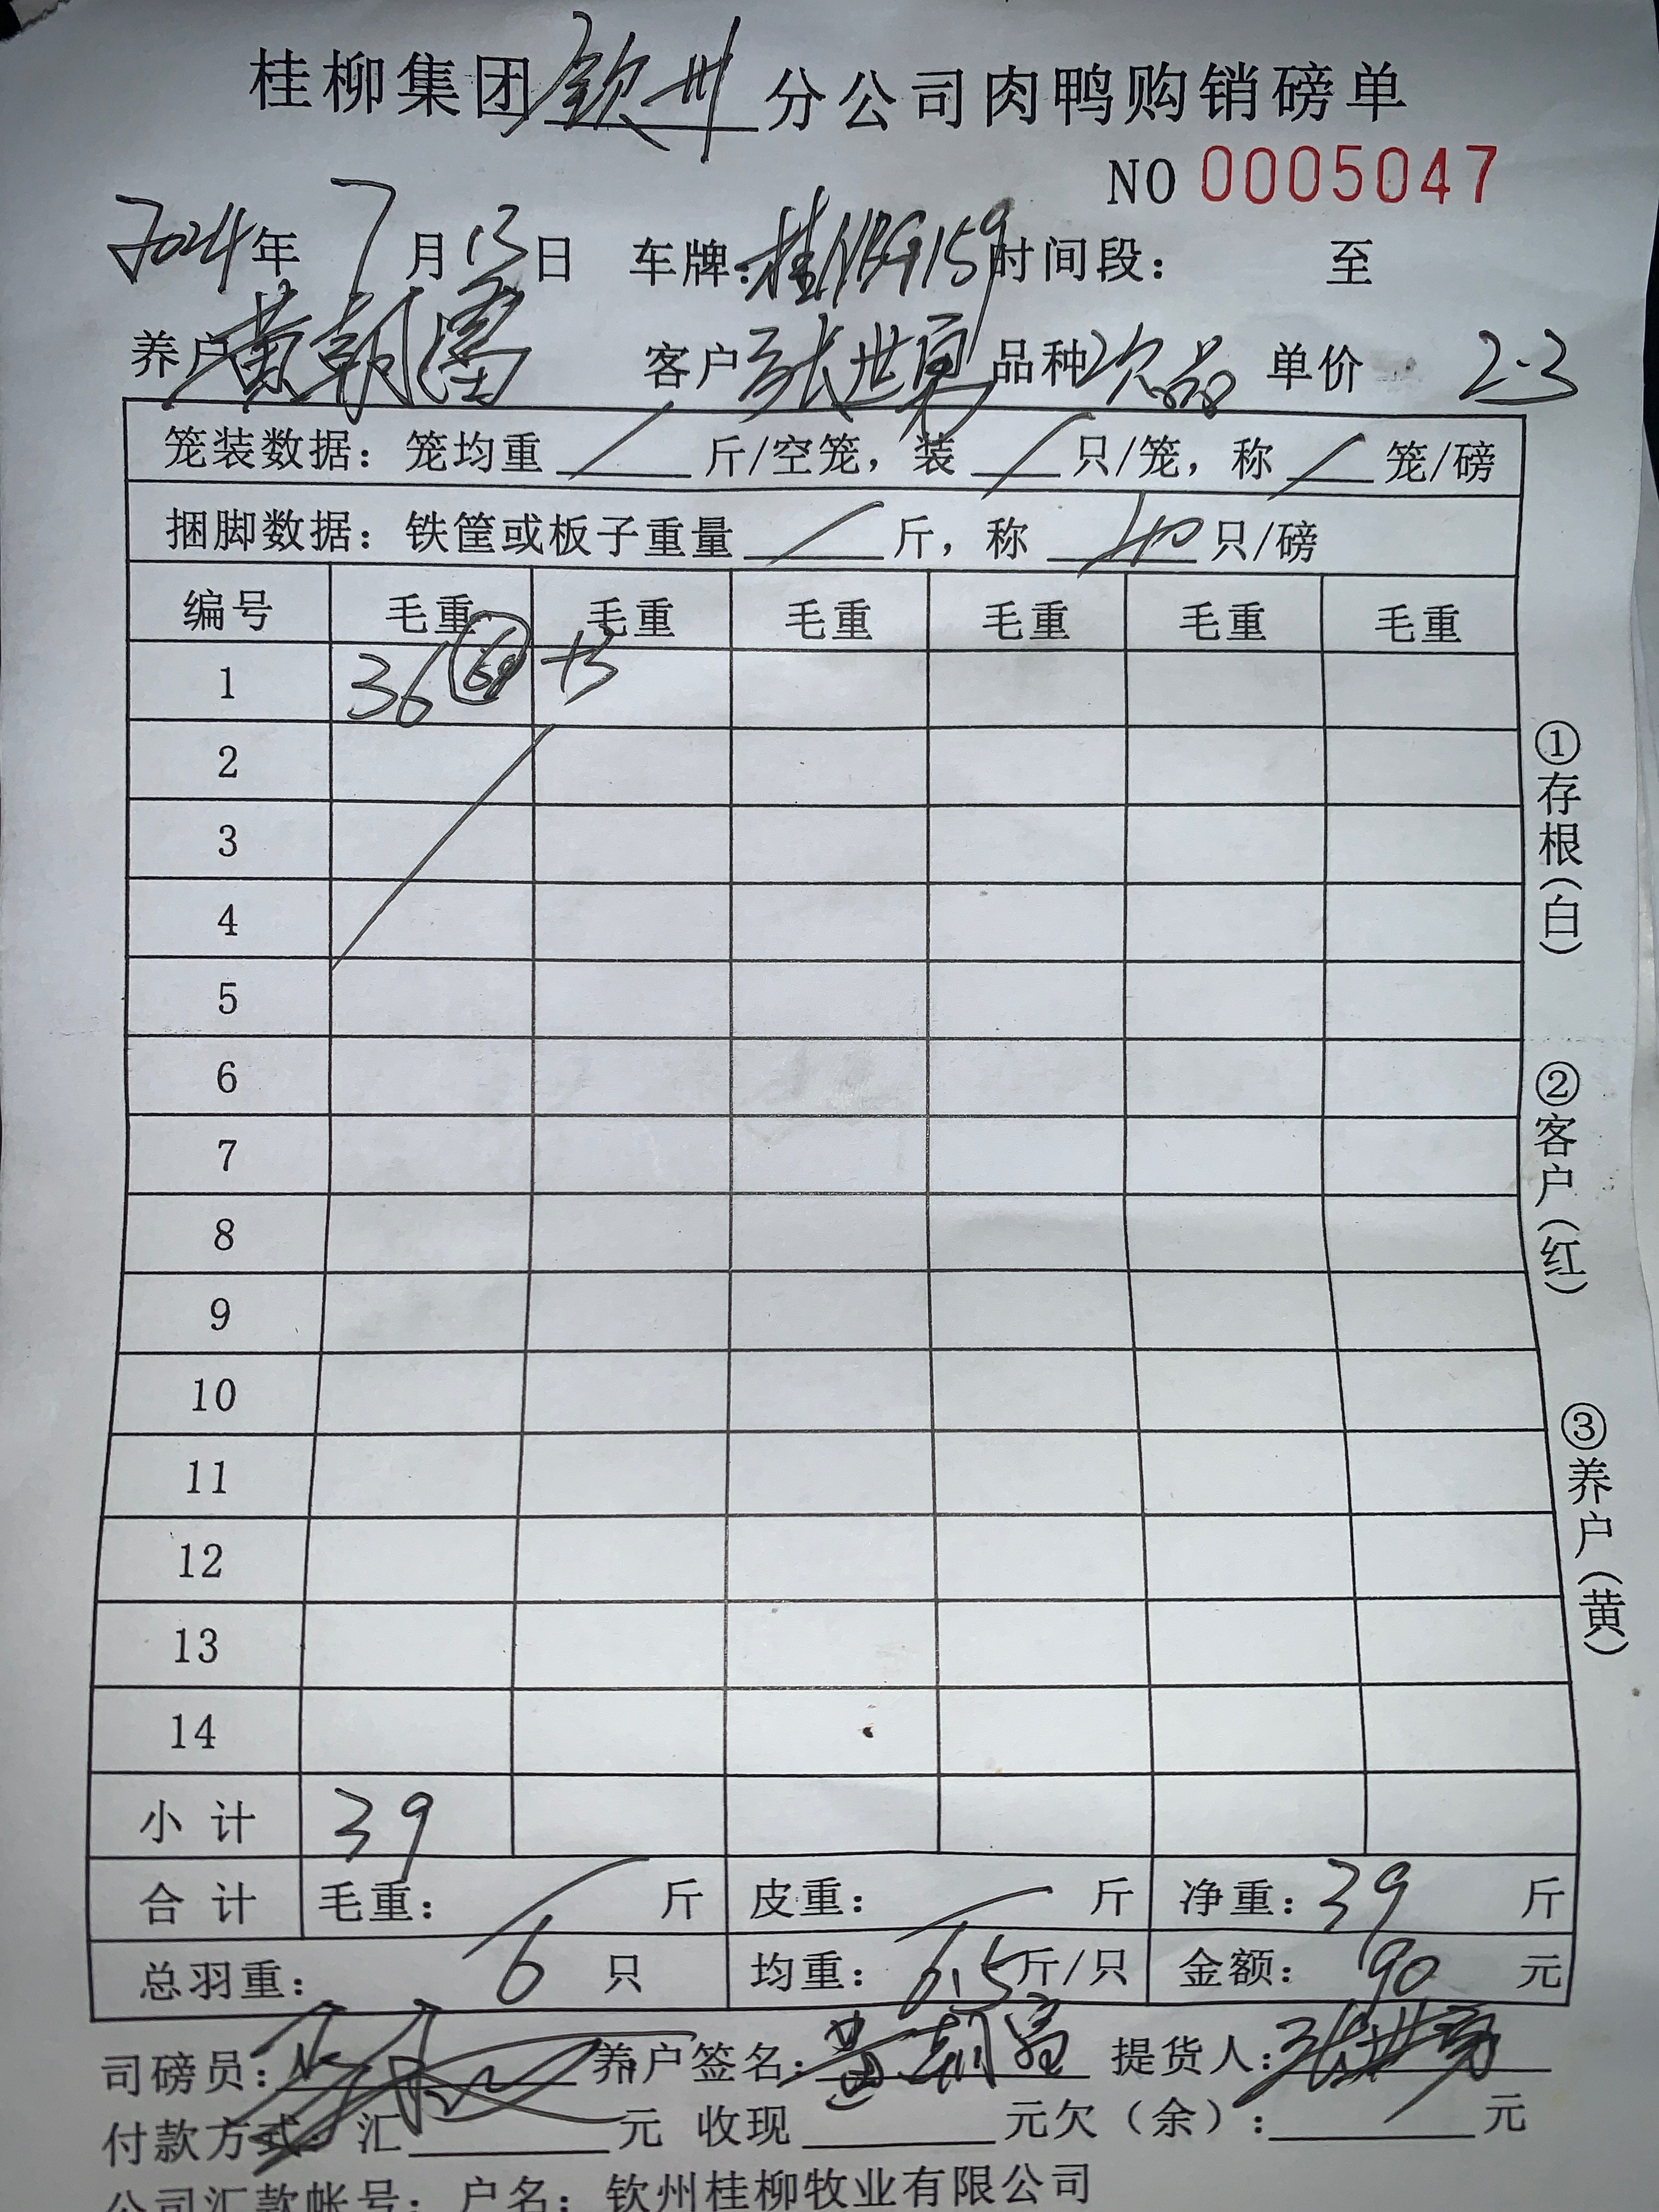 桂柳集团钦州分公司肉鸭购销磅单
NO 0005047
2024年7月13日 车牌:桂NBG159 时间段: 至
养户黄朝 客户张世勇 品种次品 单价 2.3
笼装数据:笼均重 / 斤/空笼,装 / 只/笼,称 / 笼/磅
捆脚数据:铁筐或板子重量 / 斤,称 40 只/磅
编号 毛重 毛重 毛重 毛重 毛重 毛重
1 36 +3
2
3
4
5
6
7
8
9
10
11
12
13
14
小计 39
合计 毛重: / 斤 皮重: / 斤 净重:39 斤
总羽重: 6 只 均重: 6.5斤/只 金额: 90 元
司磅员: 养户签名:黄朝 提货人:张世勇
付款方式:汇 元 收现 元欠(余): 元
公司汇款帐号:户名:钦州桂柳牧业有限公司
①存根(白)
②客户(红)
③养户(黄)